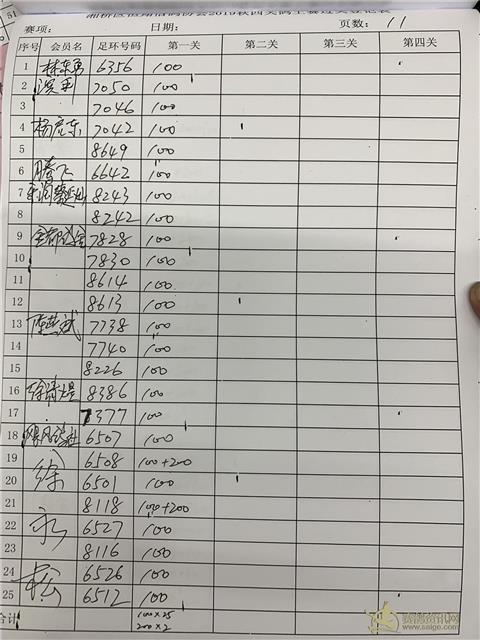 赛项: 日期: 页数: 11
序号 会员名 足环号码 第一关 第二关 第三关 第四关
1 林东勇 6356 100
2 滨利 7050 100
3 7046 100
4 杨彦东 7042 100
5 8649 100
6 腾飞 6642 100
7 8243 100
8 8242 100
9 7828 100
10 7830 100
11 8614 100
12 8613 100
13 陈燕斌 7738 100
14 7740 100
15 8226 100
16 8386 100
17 7377 100
18 6507 100
19 徐 6508 100+200
20 6501 100
21 8118 100+200
22 永 6527 100
23 8116 100
24 松 6526 100
25 6512 100
合计 100×25
200×2
赛鸽资讯网
www.saige.com
51